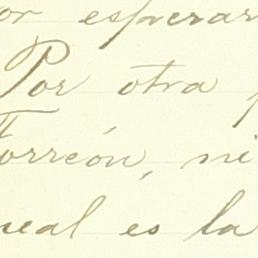 or esperar
Por otra p
Torreón, ni
neal es la